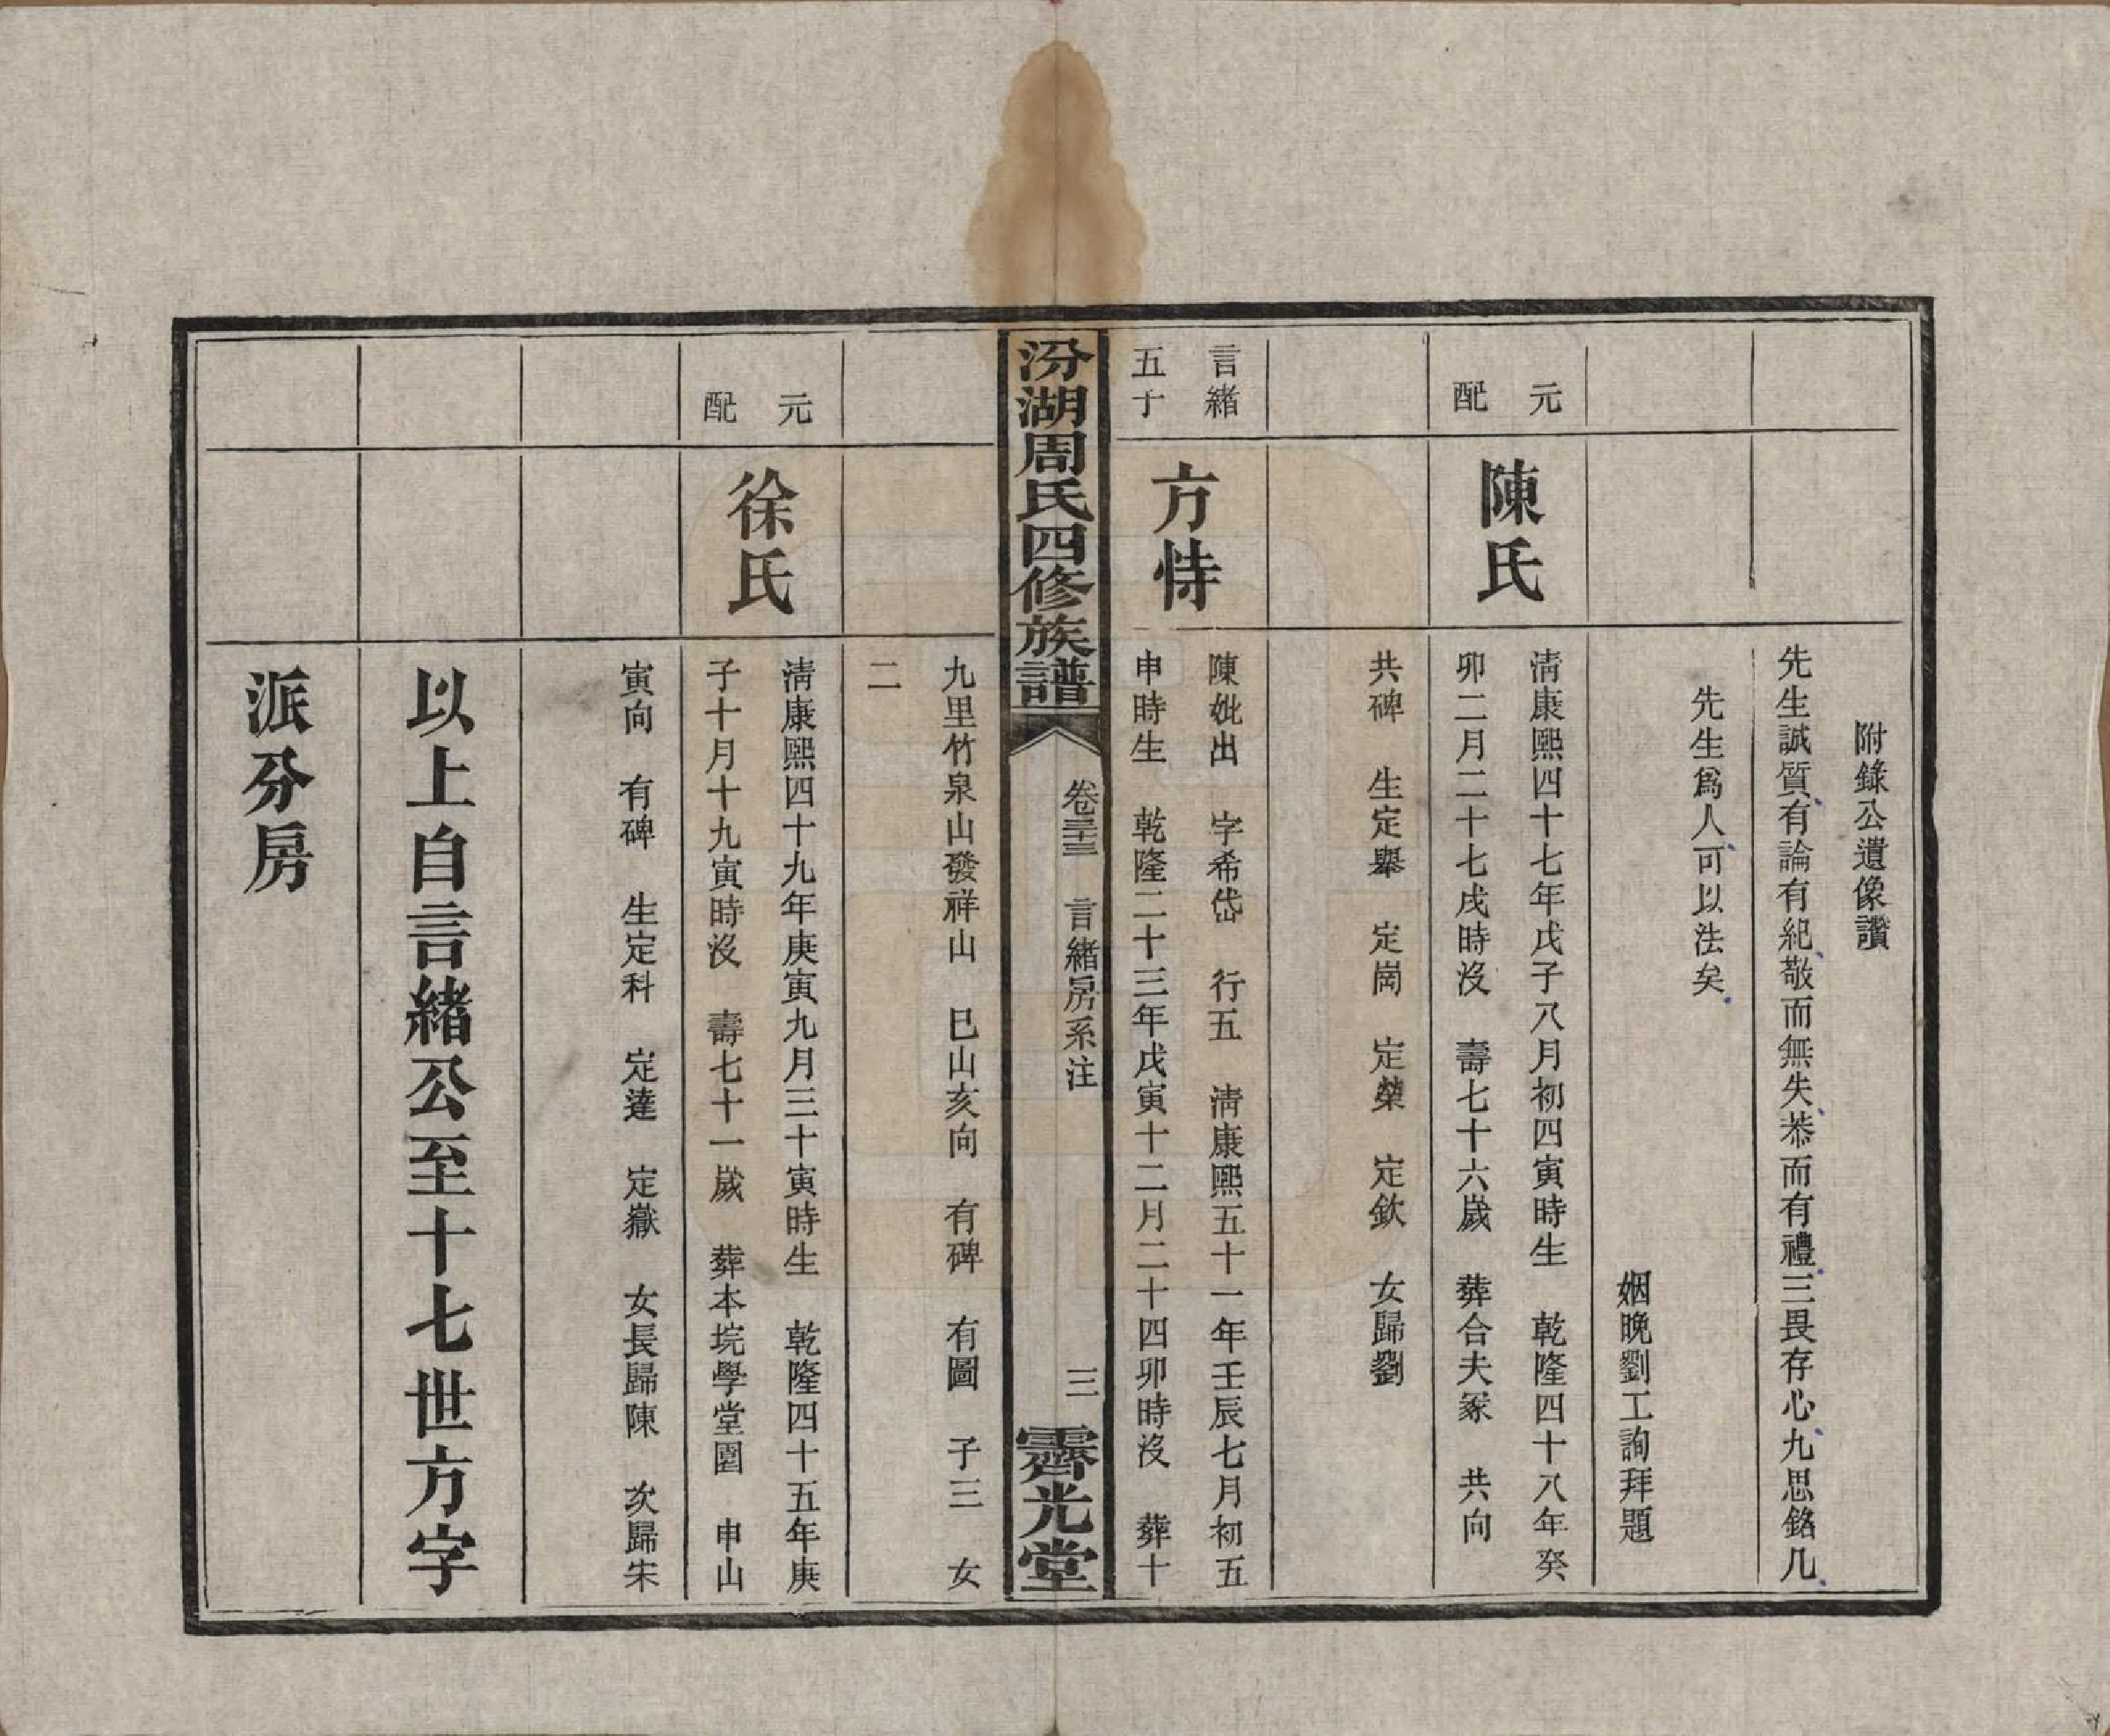 附錄公遺像讚
先生誠質有論有紀敬而無失恭而有禮三畏存心九思銘几
先生爲人可以法矣
姻晚劉工詢拜題
元配
陳氏
清康熙四十七年戊子八月初四寅時生 乾隆四十八年癸
卯二月二十七戌時沒 壽七十六歲 葬合夫冢 共向
共碑 生定舉 定崗 定榮 定欽 女歸劉
言緒五子
方恃
陳妣出 字希岱 行五 清康熙五十一年壬辰七月初五
申時生 乾隆二十三年戊寅十二月二十四卯時沒 葬十
汾湖周氏四修族譜
卷三十三 言緒房系注
三
霽光堂
九里竹泉山發祥山 巳山亥向 有碑 有圖 子三 女
二
元配
徐氏
清康熙四十九年庚寅九月三十寅時生 乾隆四十五年庚
子十月十九寅時沒 壽七十一歲 葬本垸學堂園 申山
寅向 有碑 生定科 定達 定嶽 女長歸陳 次歸宋
以上自言緒公至十七世方字
派分房